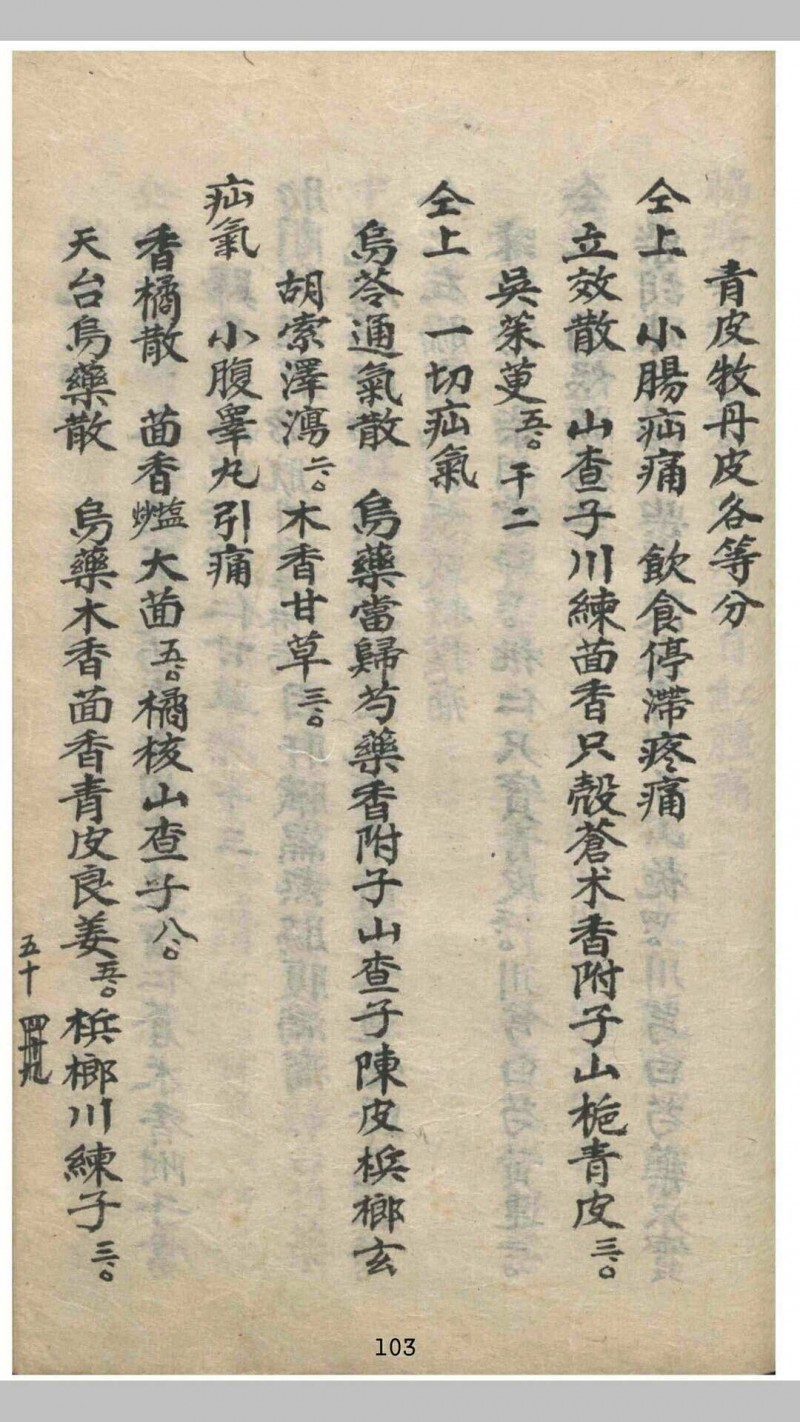 青皮牧丹皮各等分
仝上 小腸疝痛 飲食停滯疼痛
立效散 山查子川練茴香只殼蒼术香附子山梔青皮三、○
吳茱萸五、○ 干二
仝上 一切疝氣
烏苓通氣散 烏藥當歸芍藥香附子山查子陳皮梹榔玄
胡索澤瀉二、○木香甘草三、○
疝氣 小腹睪丸引痛
香橘散 茴香塩炒大茴五、○橘核山查子八、○
天台烏藥散 烏藥木香茴香青皮良姜五、○梹榔川練子三、○
五十
103